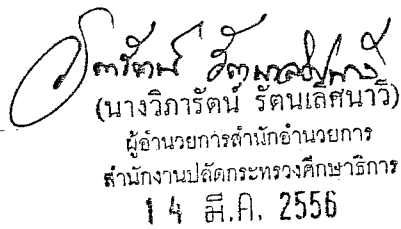 (นางวิภารัตน์ รัตนเลิศนาวี)
ผู้อำนวยการสำนักอำนวยการ
สำนักงานปลัดกระทรวงศึกษาธิการ
14 มี.ค. 2556